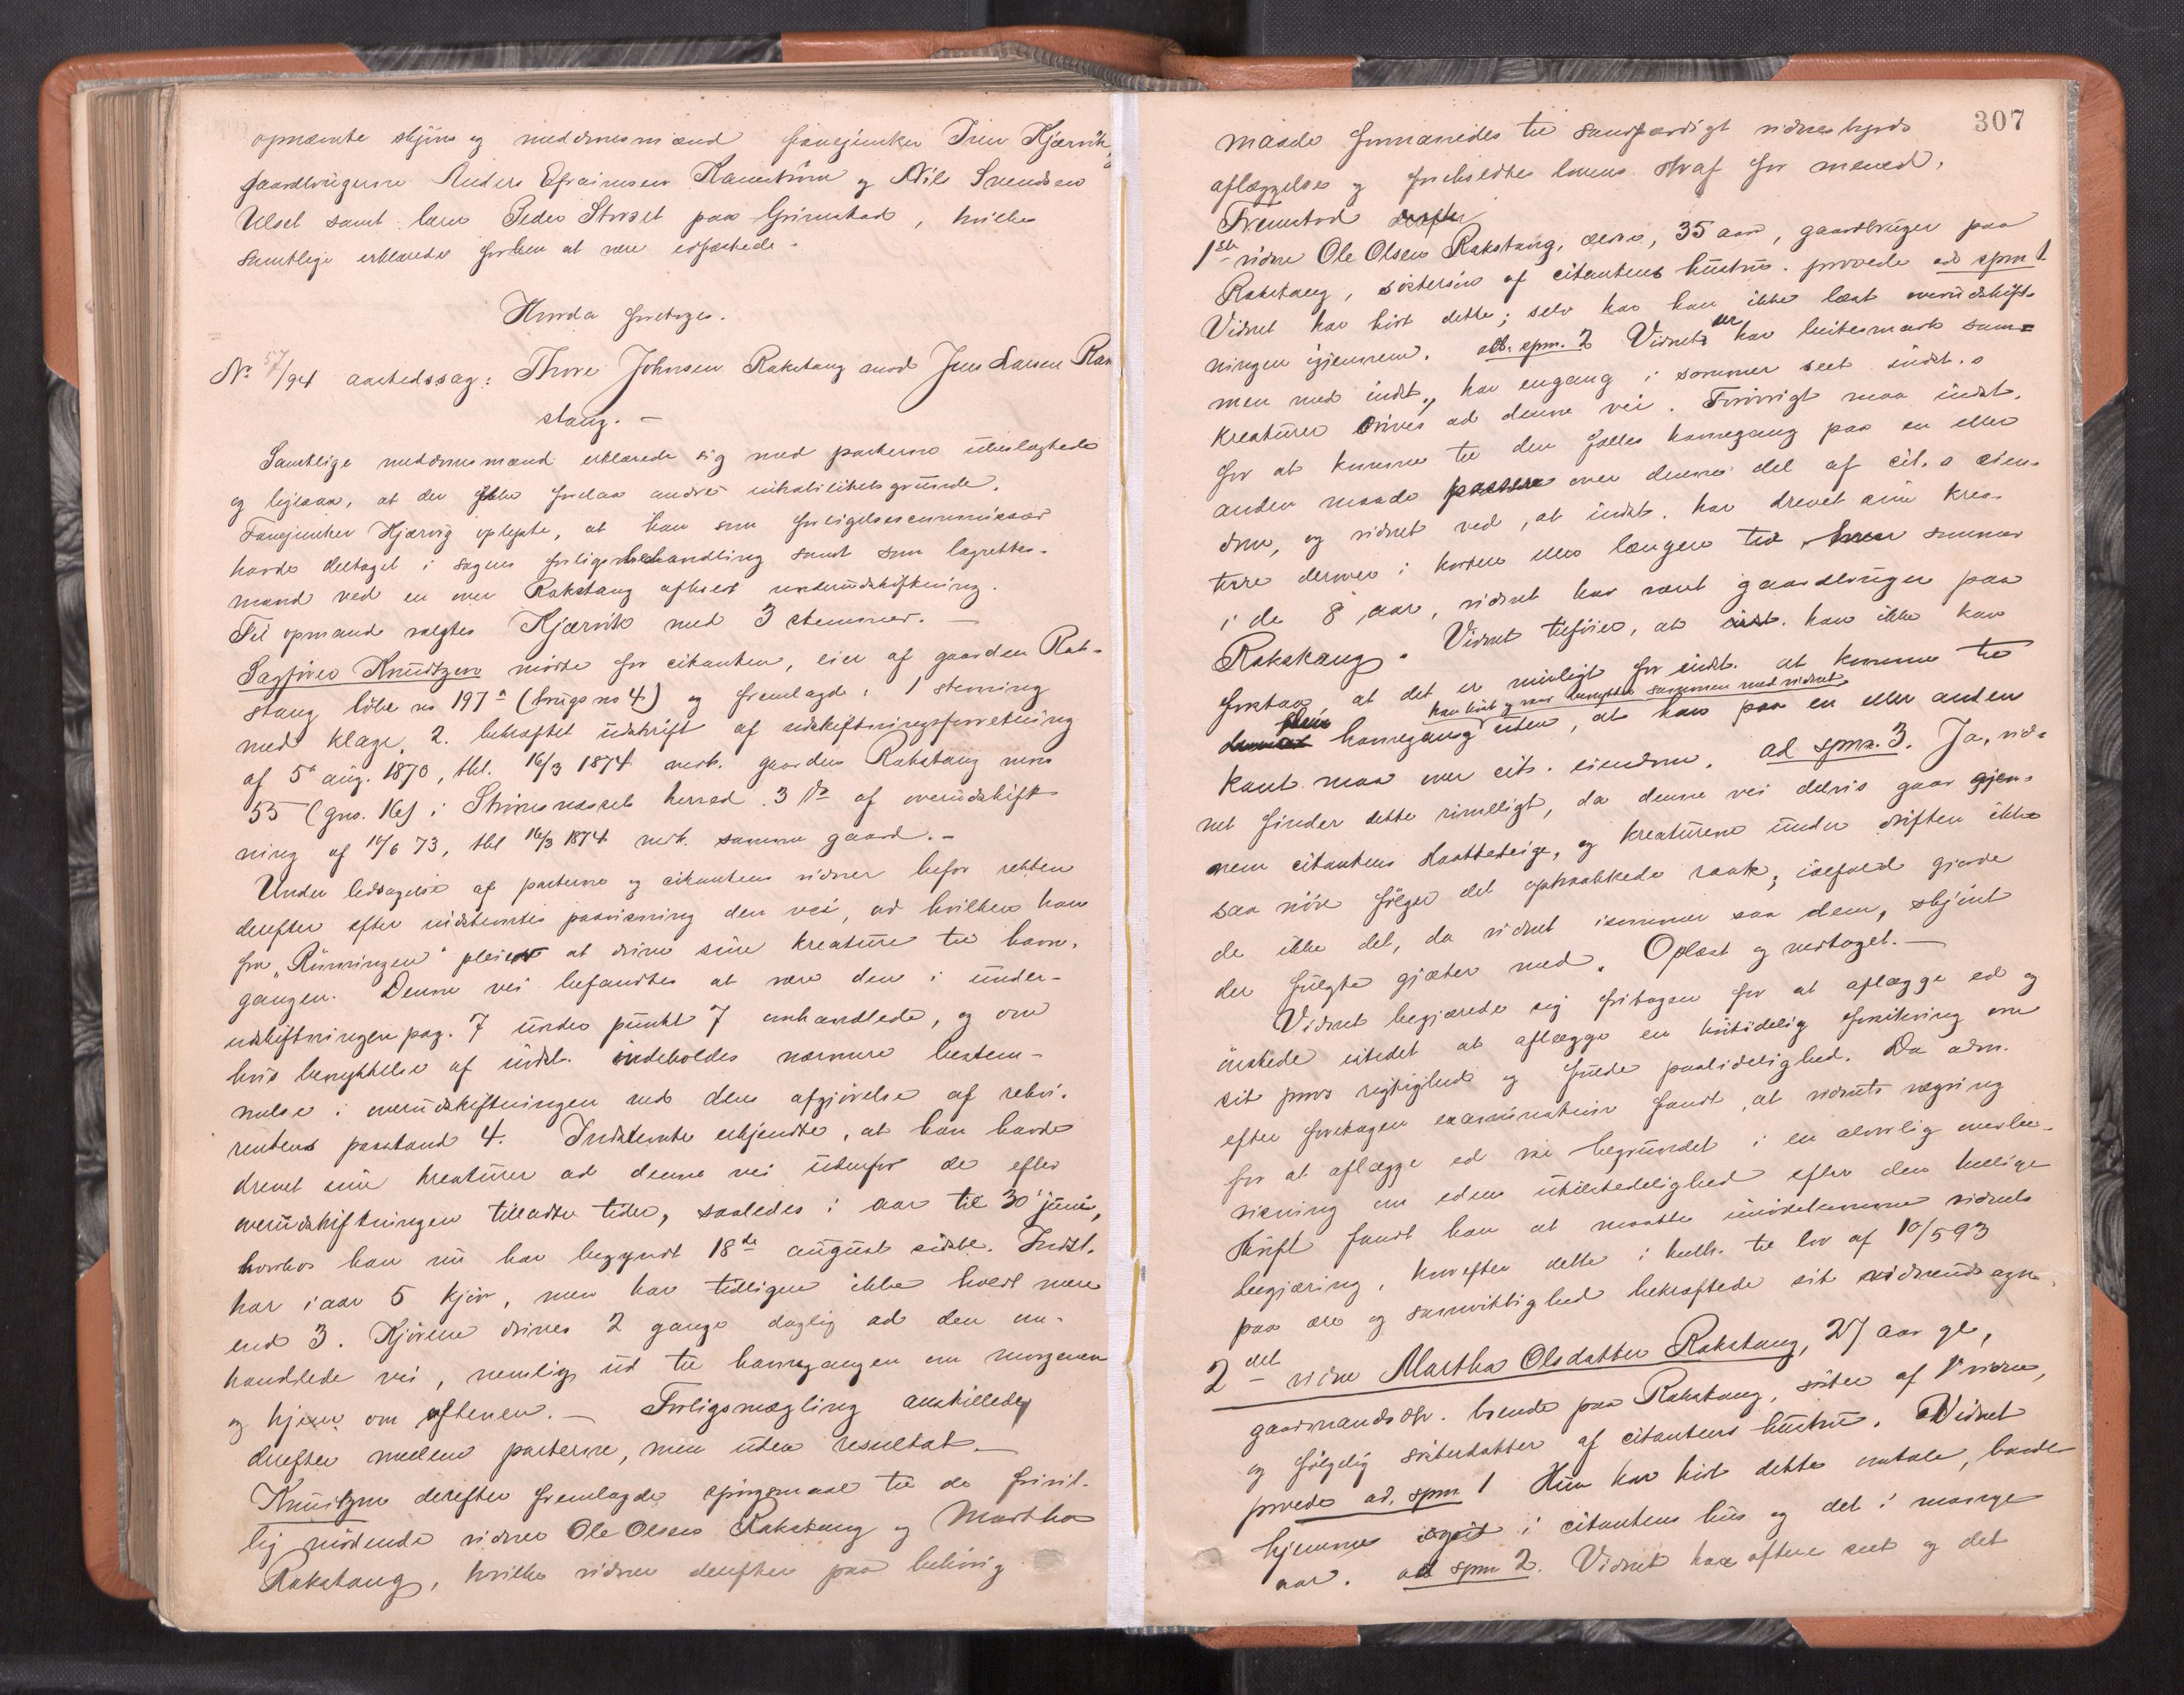 opnævnte skjøns og meddomsmænd fanejunker Iver Kjærvik,
gaardbrugerne Anders Efraimsen Kamstrøm og Nils Svendsen
Ulset samt Lars Peder Storset paa Grimstad, hvilke
samtlige erklærede forhen at være edfæstede.
Hvorda foretoges.
No 57/94 aastedssag: Thore Johnsen Rakstang mod Jens Larsen Rak
stang. —
Samtlige meddomsmænd erklærede sig med parterne ubeslægtede
og ligesaa, at der ikke forelaa andre inhabilitetsgrunde.
Fanejunker Kjærvig oplyste, at han som forligelsescommissær
havde deltaget i sagens forligsbehandling samt som lagrettes-
mand ved en over Rakstang afholdt underudskiftning.
Til opmand valgtes Kjærvik med 3 stemmer. —
Sagfører Knudtzon mødte for citanten, eier af gaarden Rak-
stang løbe no 197a (brugsno 4) og fremlagde: 1 stevning
med klage, 2. bekræftet udskrift af udskiftningsforretning
af 5te aug. 1870, thl. 16/3 1874 vedk. gaarden Rakstang mno
55 (gno. 16) i Strinsnæssets herred. 3 Do af overudskift-
ning af 11/6 73, thl 16/3 1874 vedk. samme gaard. —
Under ledsagelse af parterne og citantens vidner befor retten
derefter efter indstevntes paavisning den vei, ad hvilken han
fra "Rønningen" pleier at drive sine kreature til havne-
gangen. Denne vei befandtes at være den i under-
udskiftningen pag. 7 under punkt 7 omhandlede, og om
hvis benyttelse af indst. indeholdes nærmere bestem-
melse i overudskiftningen ved dens afgjørelse af rekvi-
rentens paastand 4. Indstevnte erkjendte, at han havde
drevet sine kreaturer ad denne vei udenfor de efter
overudskiftningen tilladte tider, saaledes i aar til 30' juni,
hvorhos han nu har begyndt 18de august sidstl. Indst.
har iaar 5 kjør, men har tidligere ikke havt mere
end 3. Kjørene drives 2 gange daglig ad den om-
handlede vei, nemlig ud til havnegangen om morgenen
og hjem om aftenen. — Forligsmægling anstilledes
derefter mellem parterne, men uden resultat. —
Knudtzon derefter fremlagde spørgsmaal til de frivil-
lig mødende vidner Ole Olsen Rakstang og Martha
Rakstang, hvilke vidner derefter paa behørig
307
maade formanedes til sandfærdigt vidnesbyrds
aflæggelse og foreholdtes lovens straf for mened.
Fremstod derefter
1ste vidne Ole Olsen Rakstang, 35 aar, gaardbruger paa
Rakstang, søstersøn af citantens hustru. provede ad spm 1
Vidnet har hørt dette; selv har han ikke læst overudskift-
ningen igjennem. ad. spm. 2 Vidnet der har beitesmark sam-
men med indst., har engang i sommer seet indst.s
kreaturer drives ad denne vei. Forøvrigt maa indst.
for at komme til den fælles havnegang paa en eller
anden maade passere over denne del af cit.s eien-
dom, og vidnet ved, at indst. har drevet sine krea-
turer derover i kortere eller længere tid hver sommer
i de 8 aar, vidnet har været gaardbruger paa
Rakstang. Vidnet tilføier, at han ikke kan
forstaa, at det er muligt for indst. at komme til
han leiet og nær benyttet sammen med vidnet
den havnegang uden, at han paa en eller anden
kant maa over cits. eiendom. ad spm. 3. Ja, vid-
net finder dette rimeligt, da denne vei delvis gaar gjen-
nem citantens slaatteteige, og kreaturene under driften ikke
saa nøie følger det optraakkede raak, iafald gjorde
de ikke det, da vidnet isommer saa dem, skjønt
der fulgte gjæter med. Oplæst og vedtaget. —
Vidnet begjærede sig fritagen for at aflægge ed og
ønskede istedet at aflægge en høitidelig forsikring om
sit provs rigtighed og fulde paalidelighed. Da adm.
efter foretagen examination fandt, at vidnets vægring
for at aflægge ed var begrundet i en alvorlig overbe-
visning om edens utilstedelighed efter den hellige
Skrift fandt han at maatte imødekomme vidnets
begjæring, hvorefter dette i henh. til lov af 10/5 93
paa ære og samvittighed bekræftede sit vidneudsagn.
2det vidne Martha Olsdatter Rakstang, 27 aar gl,
gaardmandsdtr. boende paa Rakstang, søster af 1' vidne,
og følgelig søsterdatter af citantens hustru. Vidnet
provede ad. spm 1 Hun har hørt dette omtale, baade
hjemme i citantens hus og det i mange
aar. ad spm 2. Vidnet har oftere seet og det